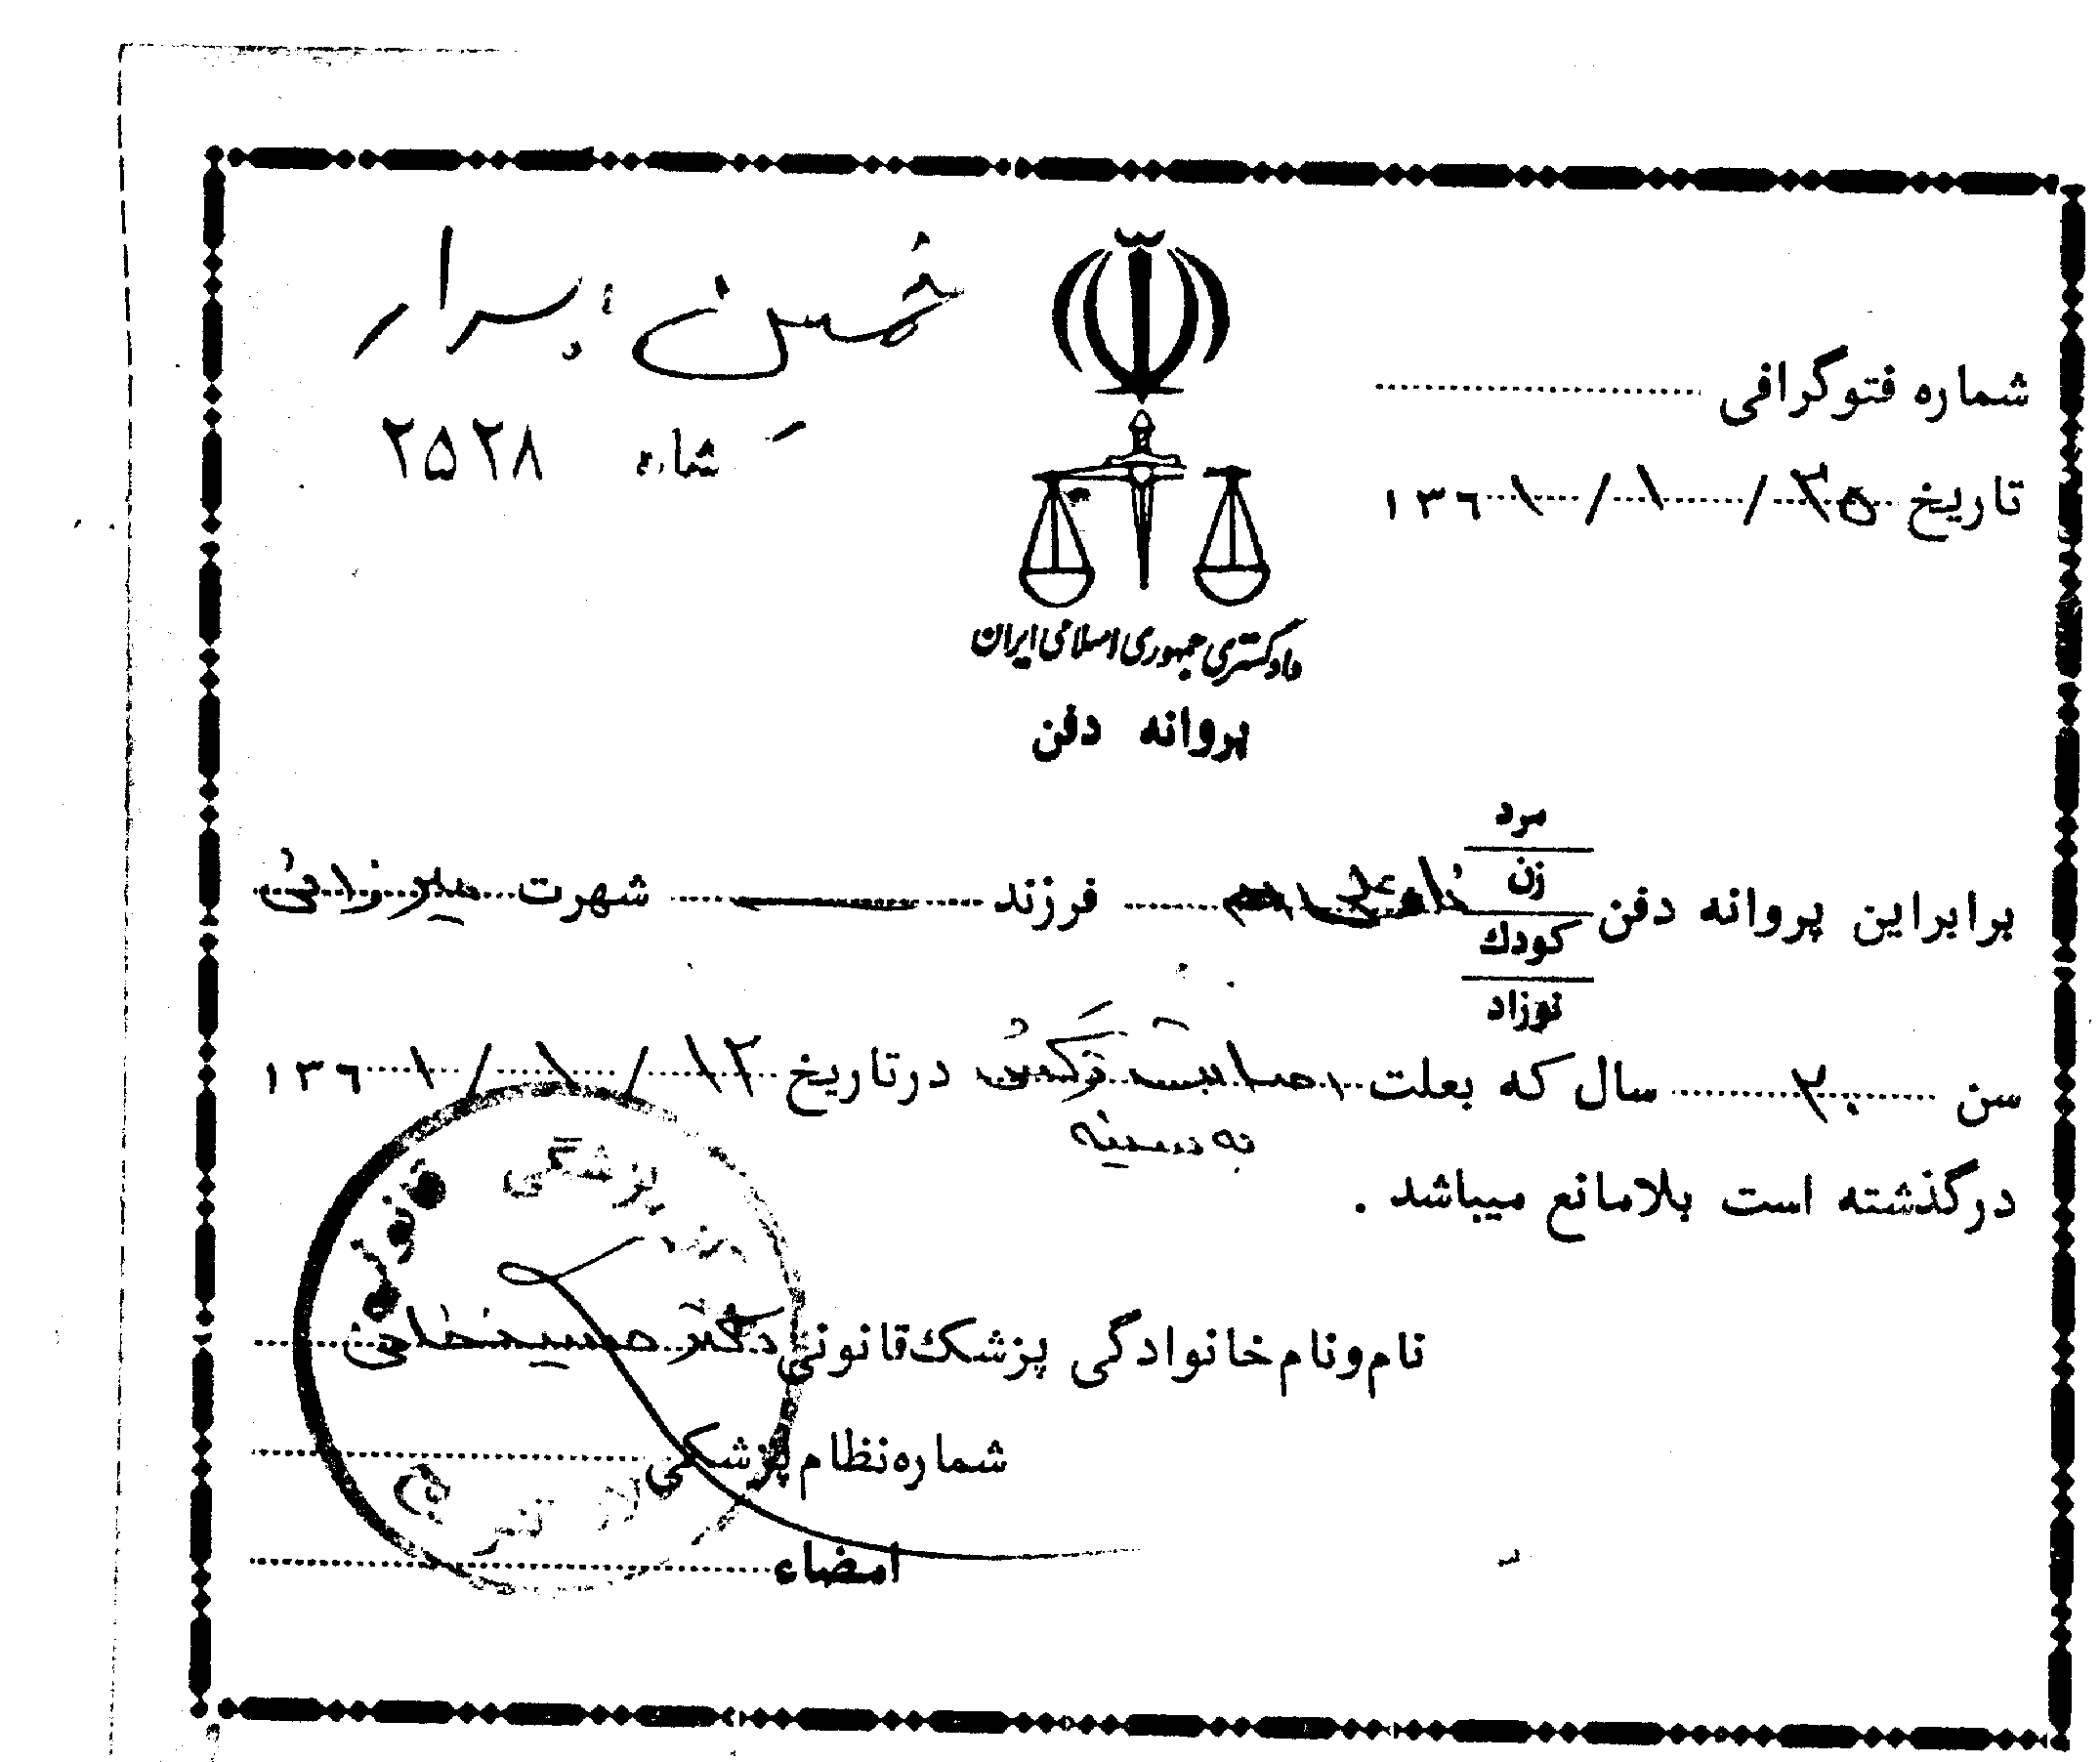 شماره فتوگرافی
تاریخ ۲۵ / ۱ / ۱ ۱۳۶
شماره ۲۵۲۸
دادگستری جمهوری اسلامی ایران
پروانه دفن
مرد
زن
کودك
نوزاد
برابراین پروانه دفن فرزند شهرت میرزائی
سن ۲۰ سال که بعلت اصابت ترکش درتاریخ ۱۲ / ۱ / ۱ ۱۳۶
به سینه
درگذشته است بلامانع میباشد .
پزشگی قانونی
نام‌ونام‌خانوادگی پزشك‌قانونی دکتر
شماره‌نظام‌پزشکی
امضاء